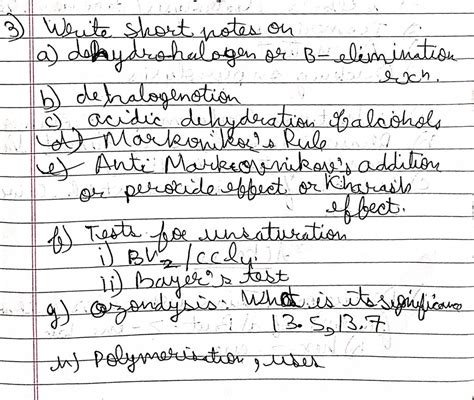 3) Write short notes on
a) dehydrohalogen or B-elimination
rxn.
b) dehalogenation
c) acidic dehydration of alcohols
d) Markonikov's Rule
e) Anti Markovnikov's addition
or peroxide effect or Kharash
effect.
f) Tests for unsaturation
i) Br2/CCl4.
ii) Bayer's test
g) ozonolysis. What is its significance
13.5, 13.7
h) Polymerisation, uses